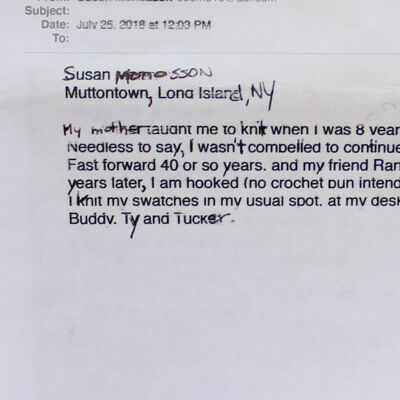 Subject:
Date: July 25, 2018 at 12:03 PM
To:
Susan
Muttontown, Long Island, NY
My mother taught me to knit when I was 8 year
Needless to say, I wasn't compelled to continue
Fast forward 40 or so years, and my friend Ran
years later, I am hooked (no crochet pun intend
I knit my swatches in my usual spot, at my desk
Buddy, Ty and Tucker.